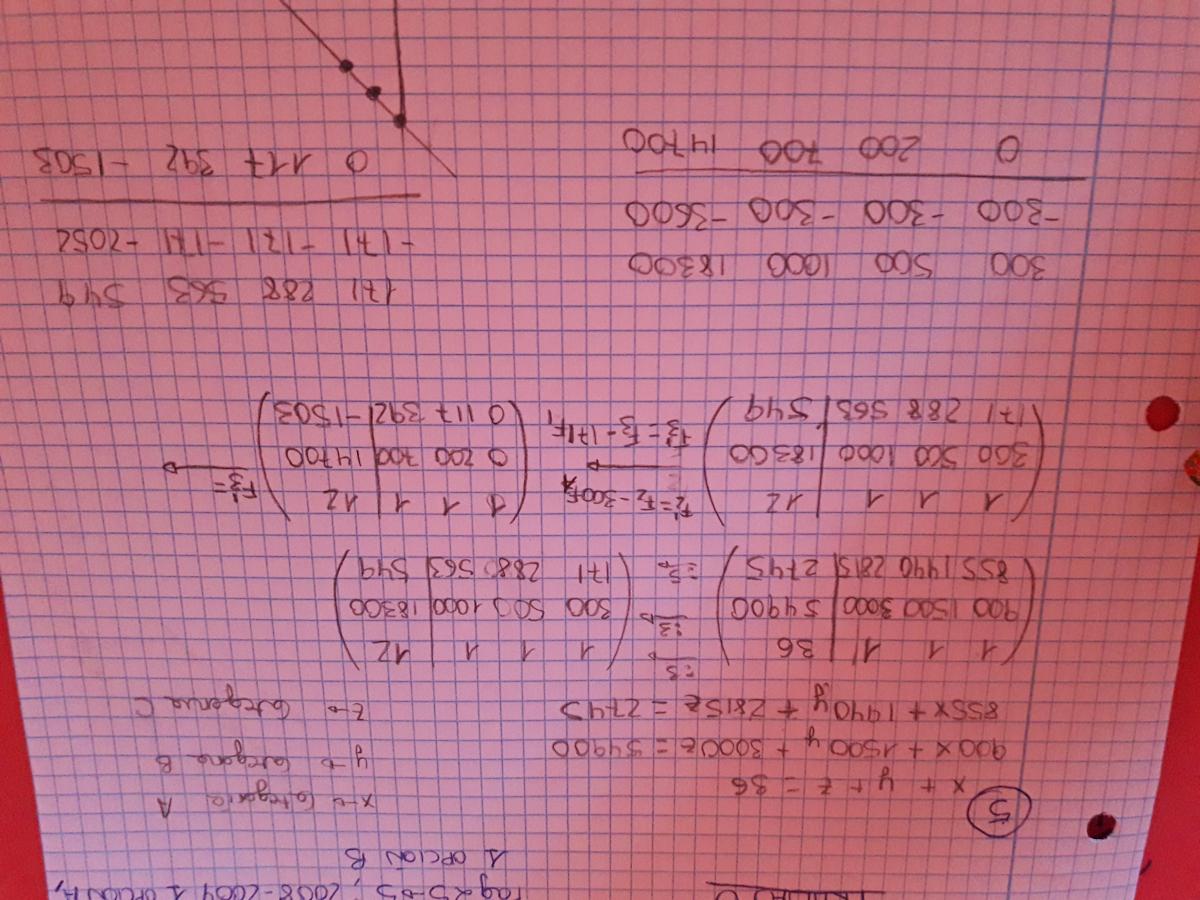 Pag 25-85, 2008-2009 1 OPCION A,
1 OPCION B
5
x + y + z = 36
900x + 1500y + 3000z = 54900
855x + 1440y + 2815z = 2745
x → Categoria A
y → Categoria B
z → Categoria C
1 1 1 | 36
900 1500 3000 | 54900
855 1440 2815 | 2745
:3
:3
:5
1 1 1 | 12
300 500 1000 | 18300
171 288 563 | 549
1 1 1 | 12
300 500 1000 | 18300
171 288 563 | 549
F2' = F2 - 300F1
F3' = F3 - 171F1
1 1 1 | 12
0 200 700 | 14700
0 117 392 | -1503
F3' =
300 500 1000 18300
-300 -300 -300 -3600
0 200 700 14700
171 288 563 549
-171 -171 -171 -2052
0 117 392 -1503